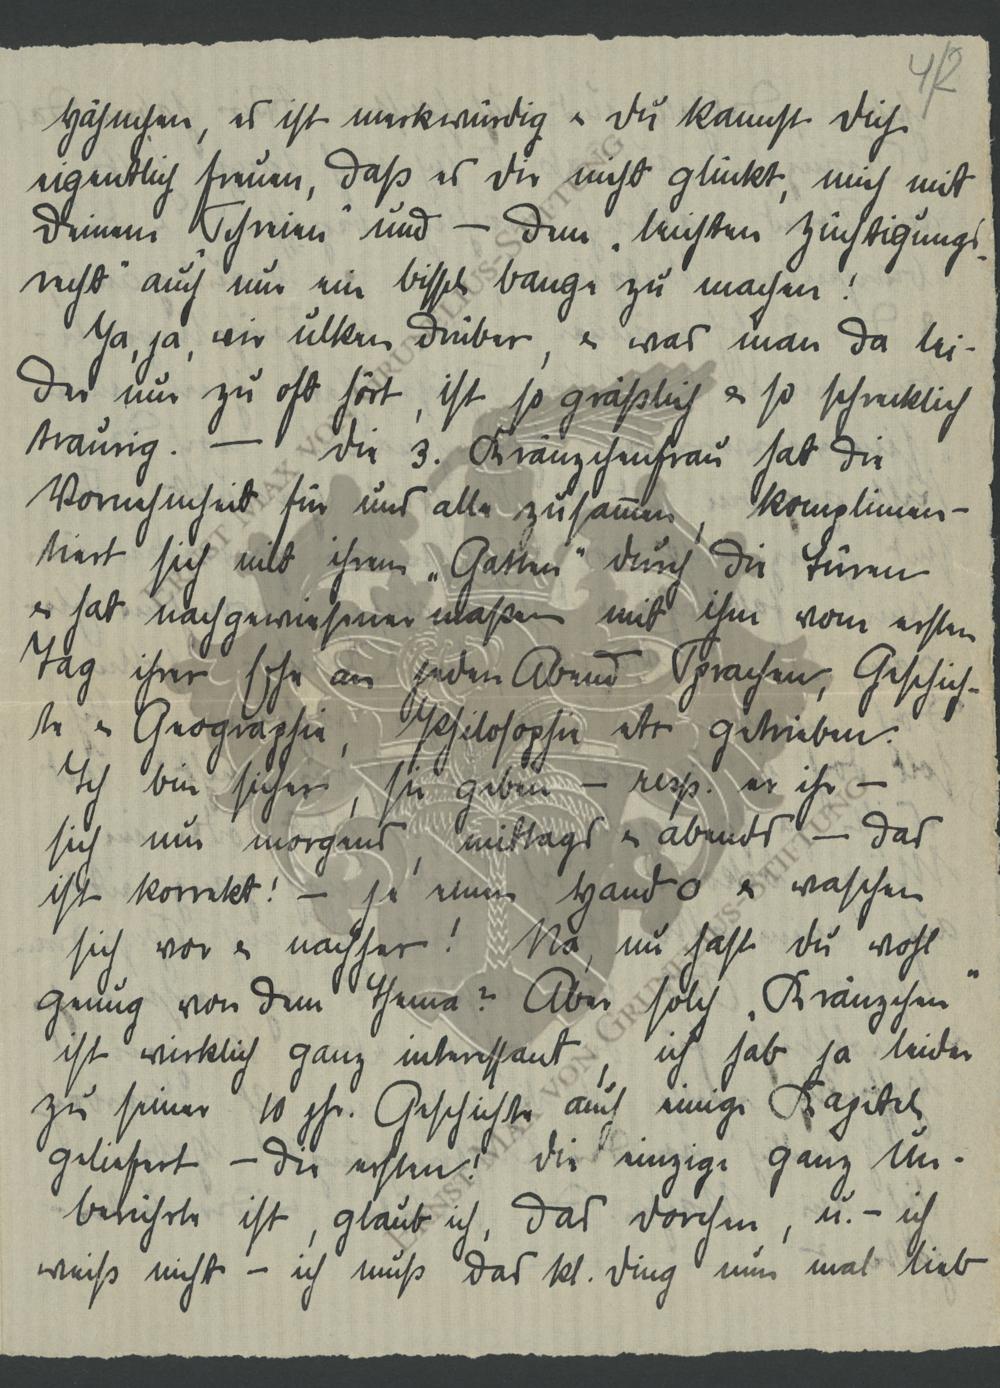 4/2
Hähnchen, es ist merkwürdig & Du kannst Dich
eigentlich freuen, daß es Dir nicht glückt, mich mit
Deinem „Schreien“ und — dem „leichten Züchtigungs-
recht“ auch nur ein bissel bange zu machen!
Ja, ja, wir ulken drüber, & was man da lei-
der nur zu oft hört, ist so gräßlich & so schrecklich
traurig. — Die 3. Kränzchenfrau hat die
Vornehmheit für uns alle zusammen, komplimen-
tiert sich mit ihrem „Gatten“ durch die Türen
& hat nachgewiesenermaßen mit ihm vom ersten
Tag ihrer Ehe an jeden Abend Sprachen, Geschich-
te & Geographie, Philosophie etc getrieben.
Ich bin sicher, sie geben — resp. er ihr —
sich nur morgens, mittags & abends — das
ist korrekt! — je einen Hand O & waschen
sich vor & nachher! Na, nu hast du wohl
genug von dem Thema? Aber solch „Kränzchen“
ist wirklich ganz interessant, ich hab ja leider
zu seiner 10 jhr. Geschichte auch einige Kapitel
geliefert — die ersten! Die einzige ganz Un-
berührte ist, glaub ich, das Dorchen, u. — ich
weiß nicht — ich muß das kl. Ding nun mal lieb